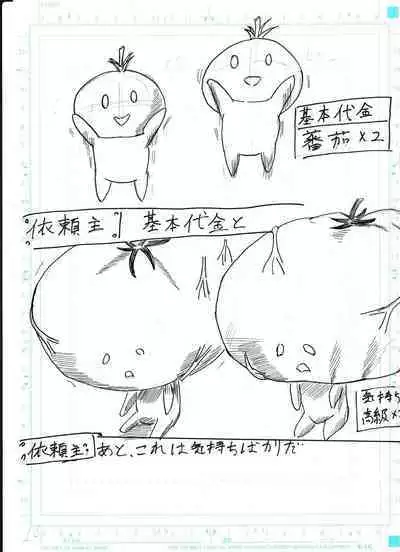 基本代金
蕃茄×2
依頼主 基本代金と
気持ち
高級×
依頼主 あと、これは気持ちばかりだ